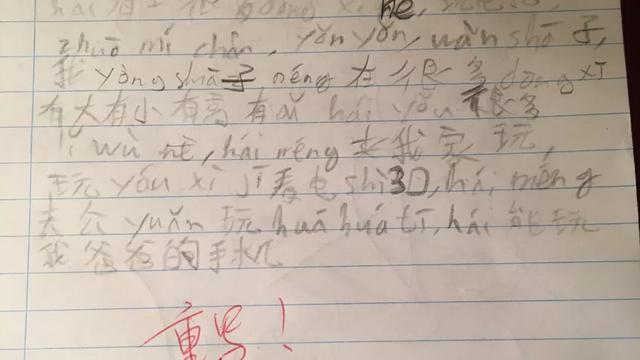 hái 有 很 多 dōng xī hé
zhuō mí cháng, yǒn yǒn, wán shā 子,
我 yòng shā 子 néng 在 很 多 dōng xī
有大有小有高有ǎi hái yǒu 很多
lǐ wù 呢, hái néng 来我家玩,
玩 yóu xì jī 看电 shì 3D, hái néng
去公 yuán 玩 huá huá tī, hái 能玩
我爸爸的手机
重写!